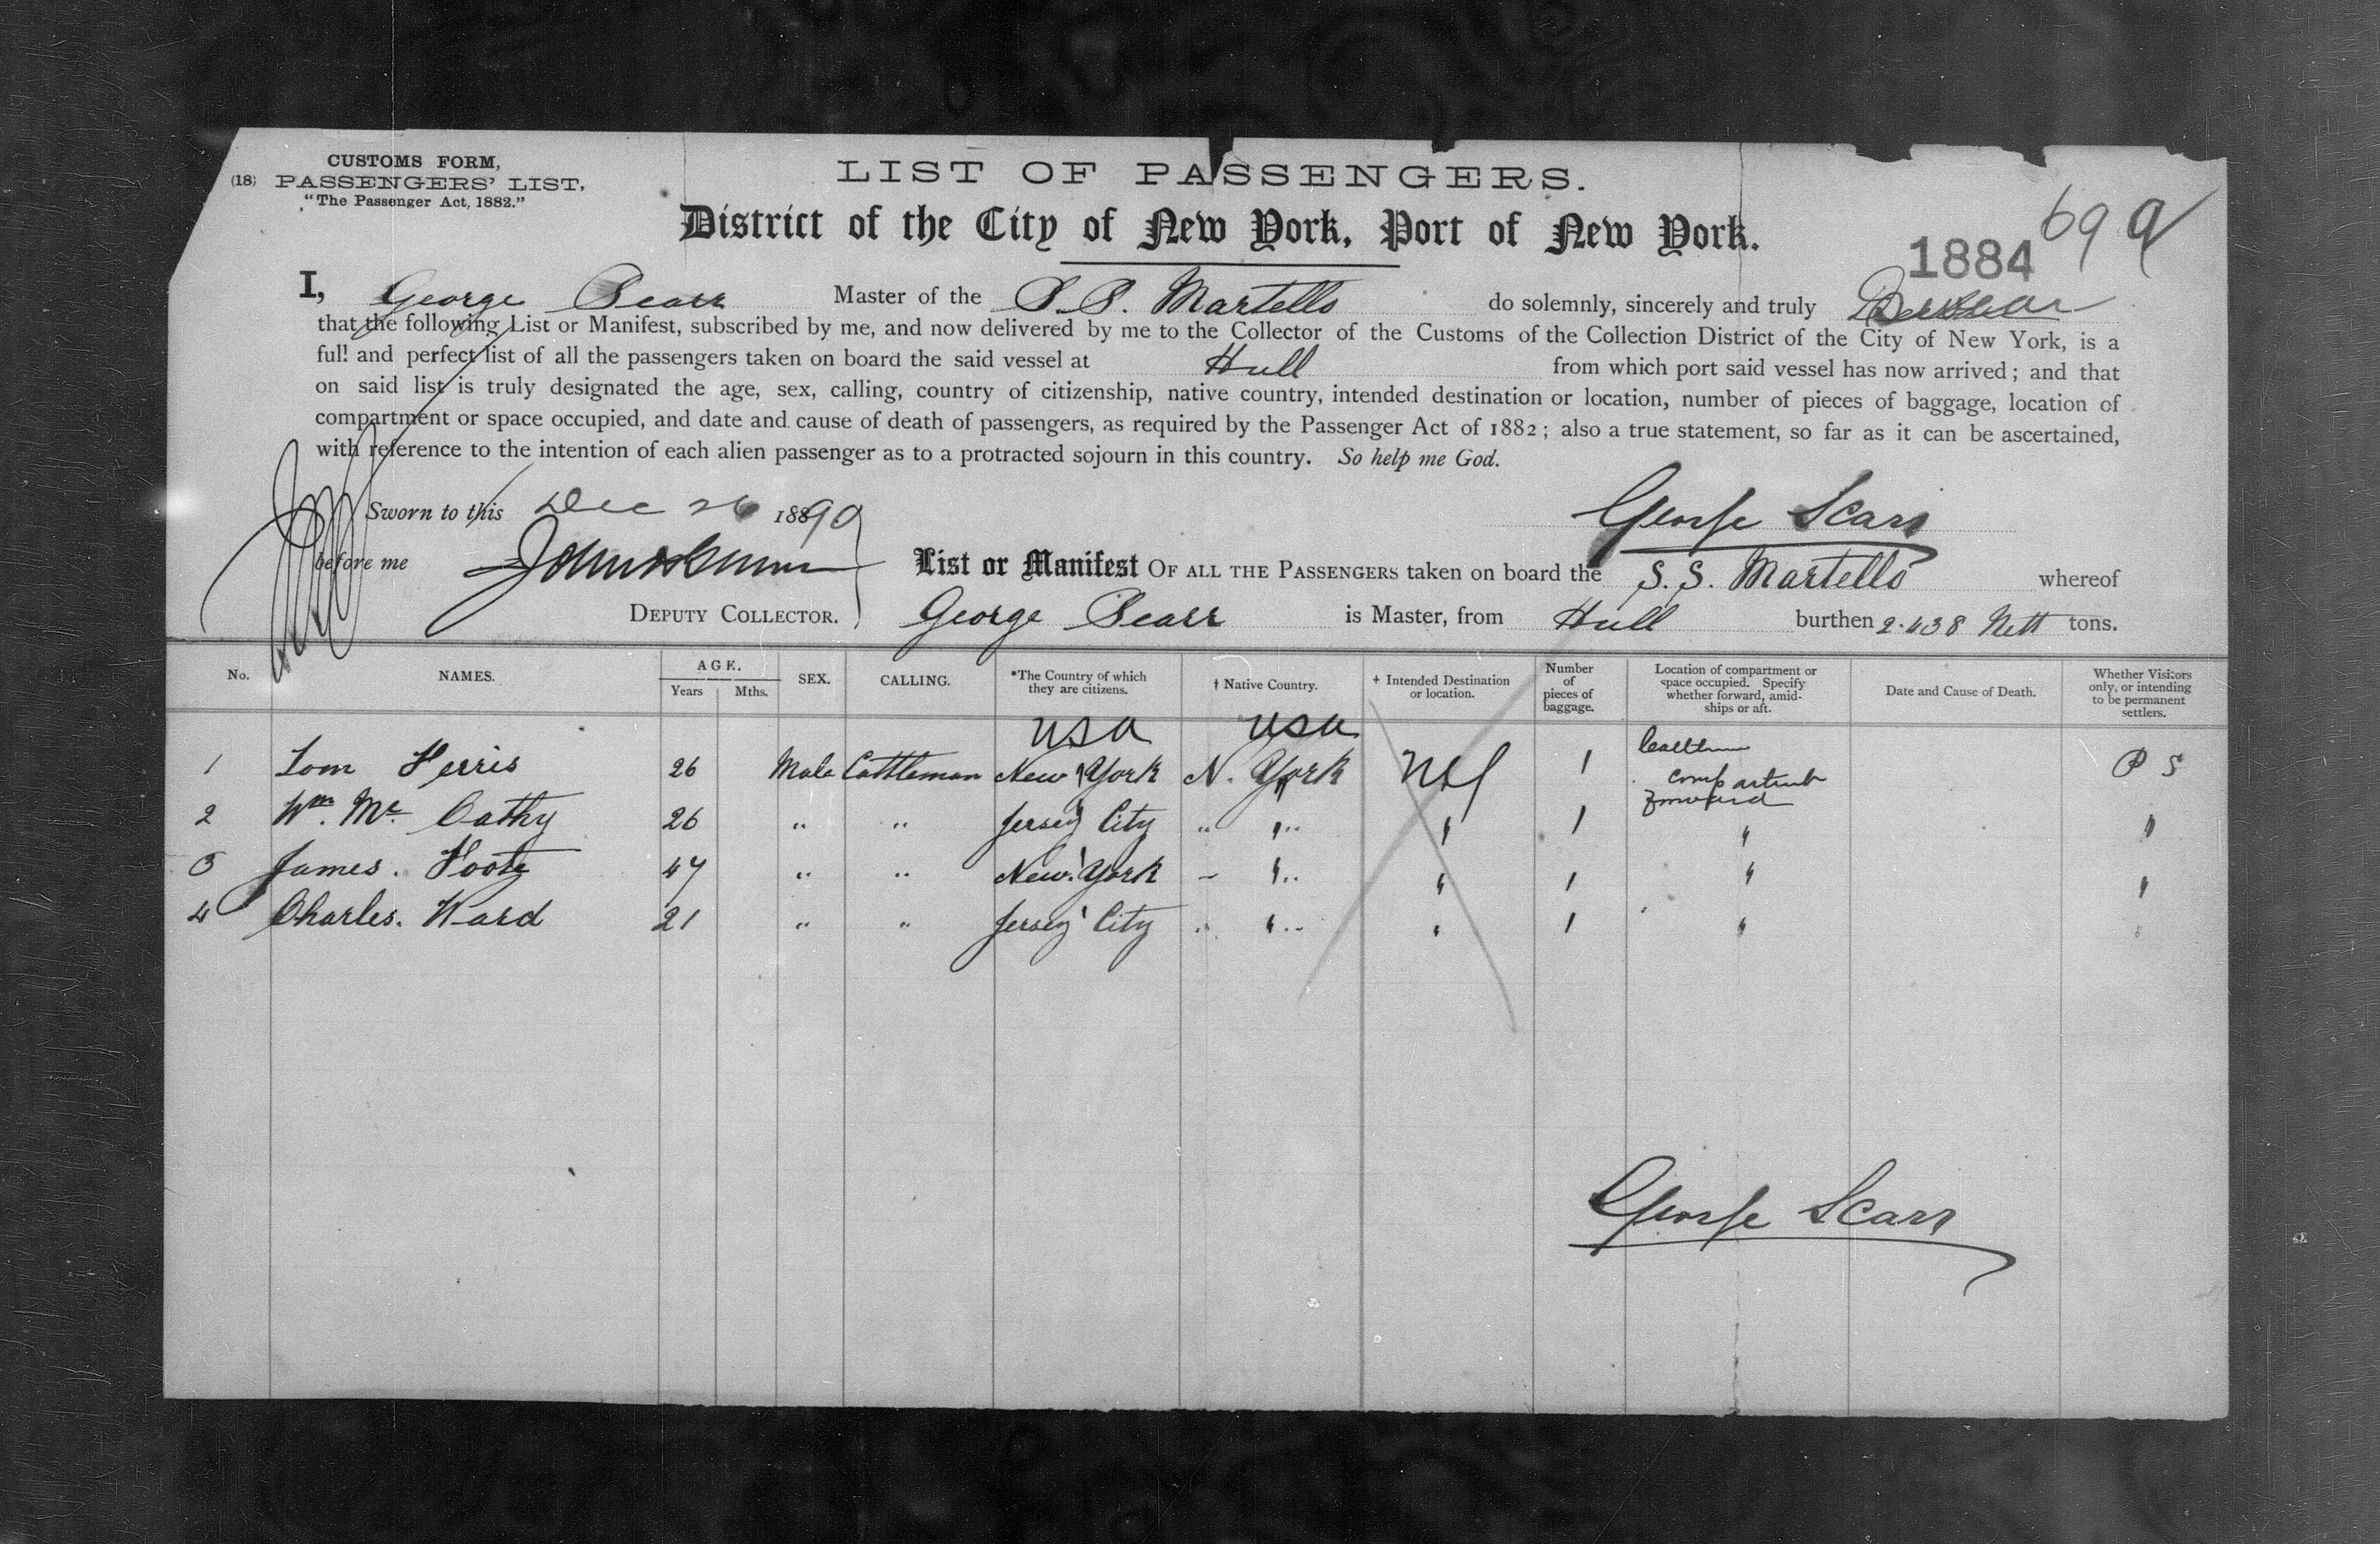 CUSTOMS FORM,
(18) PASSENGERS' LIST.
"The Passenger Act, 1882."
LIST OF PASSENGERS.
District of the City of New York, Port of New York.
69 9
1884
I, George Scarr Master of the S.S. Martello do solemnly, sincerely and truly
that the following List or Manifest, subscribed by me, and now delivered by me to the Collector of the Customs of the Collection District of the City of New York, is a
full and perfect list of all the passengers taken on board the said vessel at Hull from which port said vessel has now arrived; and that
on said list is truly designated the age, sex, calling, country of citizenship, native country, intended destination or location, number of pieces of baggage, location of
compartment or space occupied, and date and cause of death of passengers, as required by the Passenger Act of 1882; also a true statement, so far as it can be ascertained,
with reference to the intention of each alien passenger as to a protracted sojourn in this country. So help me God.
Sworn to this Dec 26 1890 George Scarr
before me List or Manifest OF ALL THE PASSENGERS taken on board the S.S. Martello whereof
DEPUTY COLLECTOR. George Scarr is Master, from Hull burthen 2.438 Nett tons.
No. NAMES. AGE. Years Mths. SEX. CALLING. *The Country of which they are citizens. † Native Country. + Intended Destination or location. Number of pieces of baggage. Location of compartment or space occupied. Specify whether forward, amidships or aft. Date and Cause of Death. Whether Visitors only, or intending to be permanent settlers.
USA USA
1 Tom Ferris 26 Male Cattleman New York N. York NY 1 P S
2 Wm. Mc. Cathy 26 " " Jersey City " " " 1 " "
3 James. Foote 47 " " New York " " " 1 " "
4 Charles. Ward 21 " " Jersey City " " " 1 " "
George Scarr